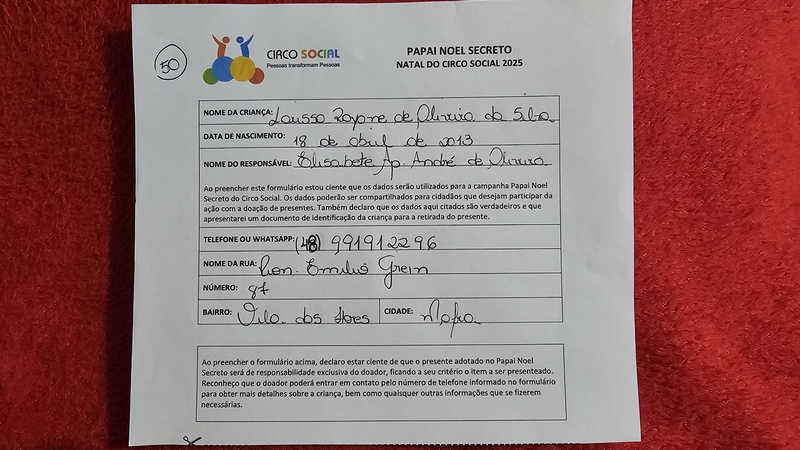 50
CIRCO SOCIAL
Pessoas transformam Pessoas
PAPAI NOEL SECRETO
NATAL DO CIRCO SOCIAL 2025
NOME DA CRIANÇA: Larissa Rayane de Oliveira da Silva
DATA DE NASCIMENTO: 18 de abril de 2013
NOME DO RESPONSÁVEL: Elisabete Ap. André de Oliveira
Ao preencher este formulário estou ciente que os dados serão utilizados para a campanha Papai Noel
Secreto do Circo Social. Os dados poderão ser compartilhados para cidadãos que desejam participar da
ação com a doação de presentes. Também declaro que os dados aqui citados são verdadeiros e que
apresentarei um documento de identificação da criança para a retirada do presente.
TELEFONE OU WHATSAPP: (48) 991912296
NOME DA RUA: Emilio Grein
NÚMERO: 87
BAIRRO: Vila das flores CIDADE: Mafra
Ao preencher o formulário acima, declaro estar ciente de que o presente adotado no Papai Noel
Secreto será de responsabilidade exclusiva do doador, ficando a seu critério o item a ser presenteado.
Reconheço que o doador poderá entrar em contato pelo número de telefone informado no formulário
para obter mais detalhes sobre a criança, bem como quaisquer outras informações que se fizerem
necessárias.